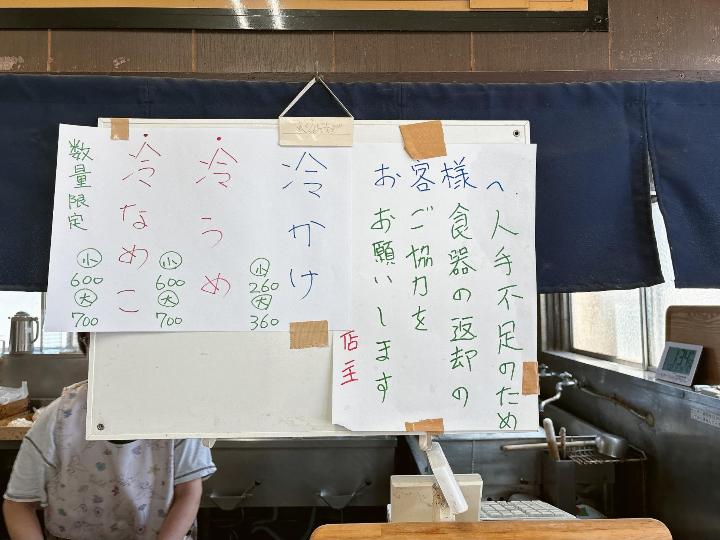 お客様へ
人手不足のため
食器の返却の
ご協力を
お願いします
店主
冷かけ
小
260
大
360
冷うめ
小
600
大
700
冷なめこ
小
600
大
700
数量限定